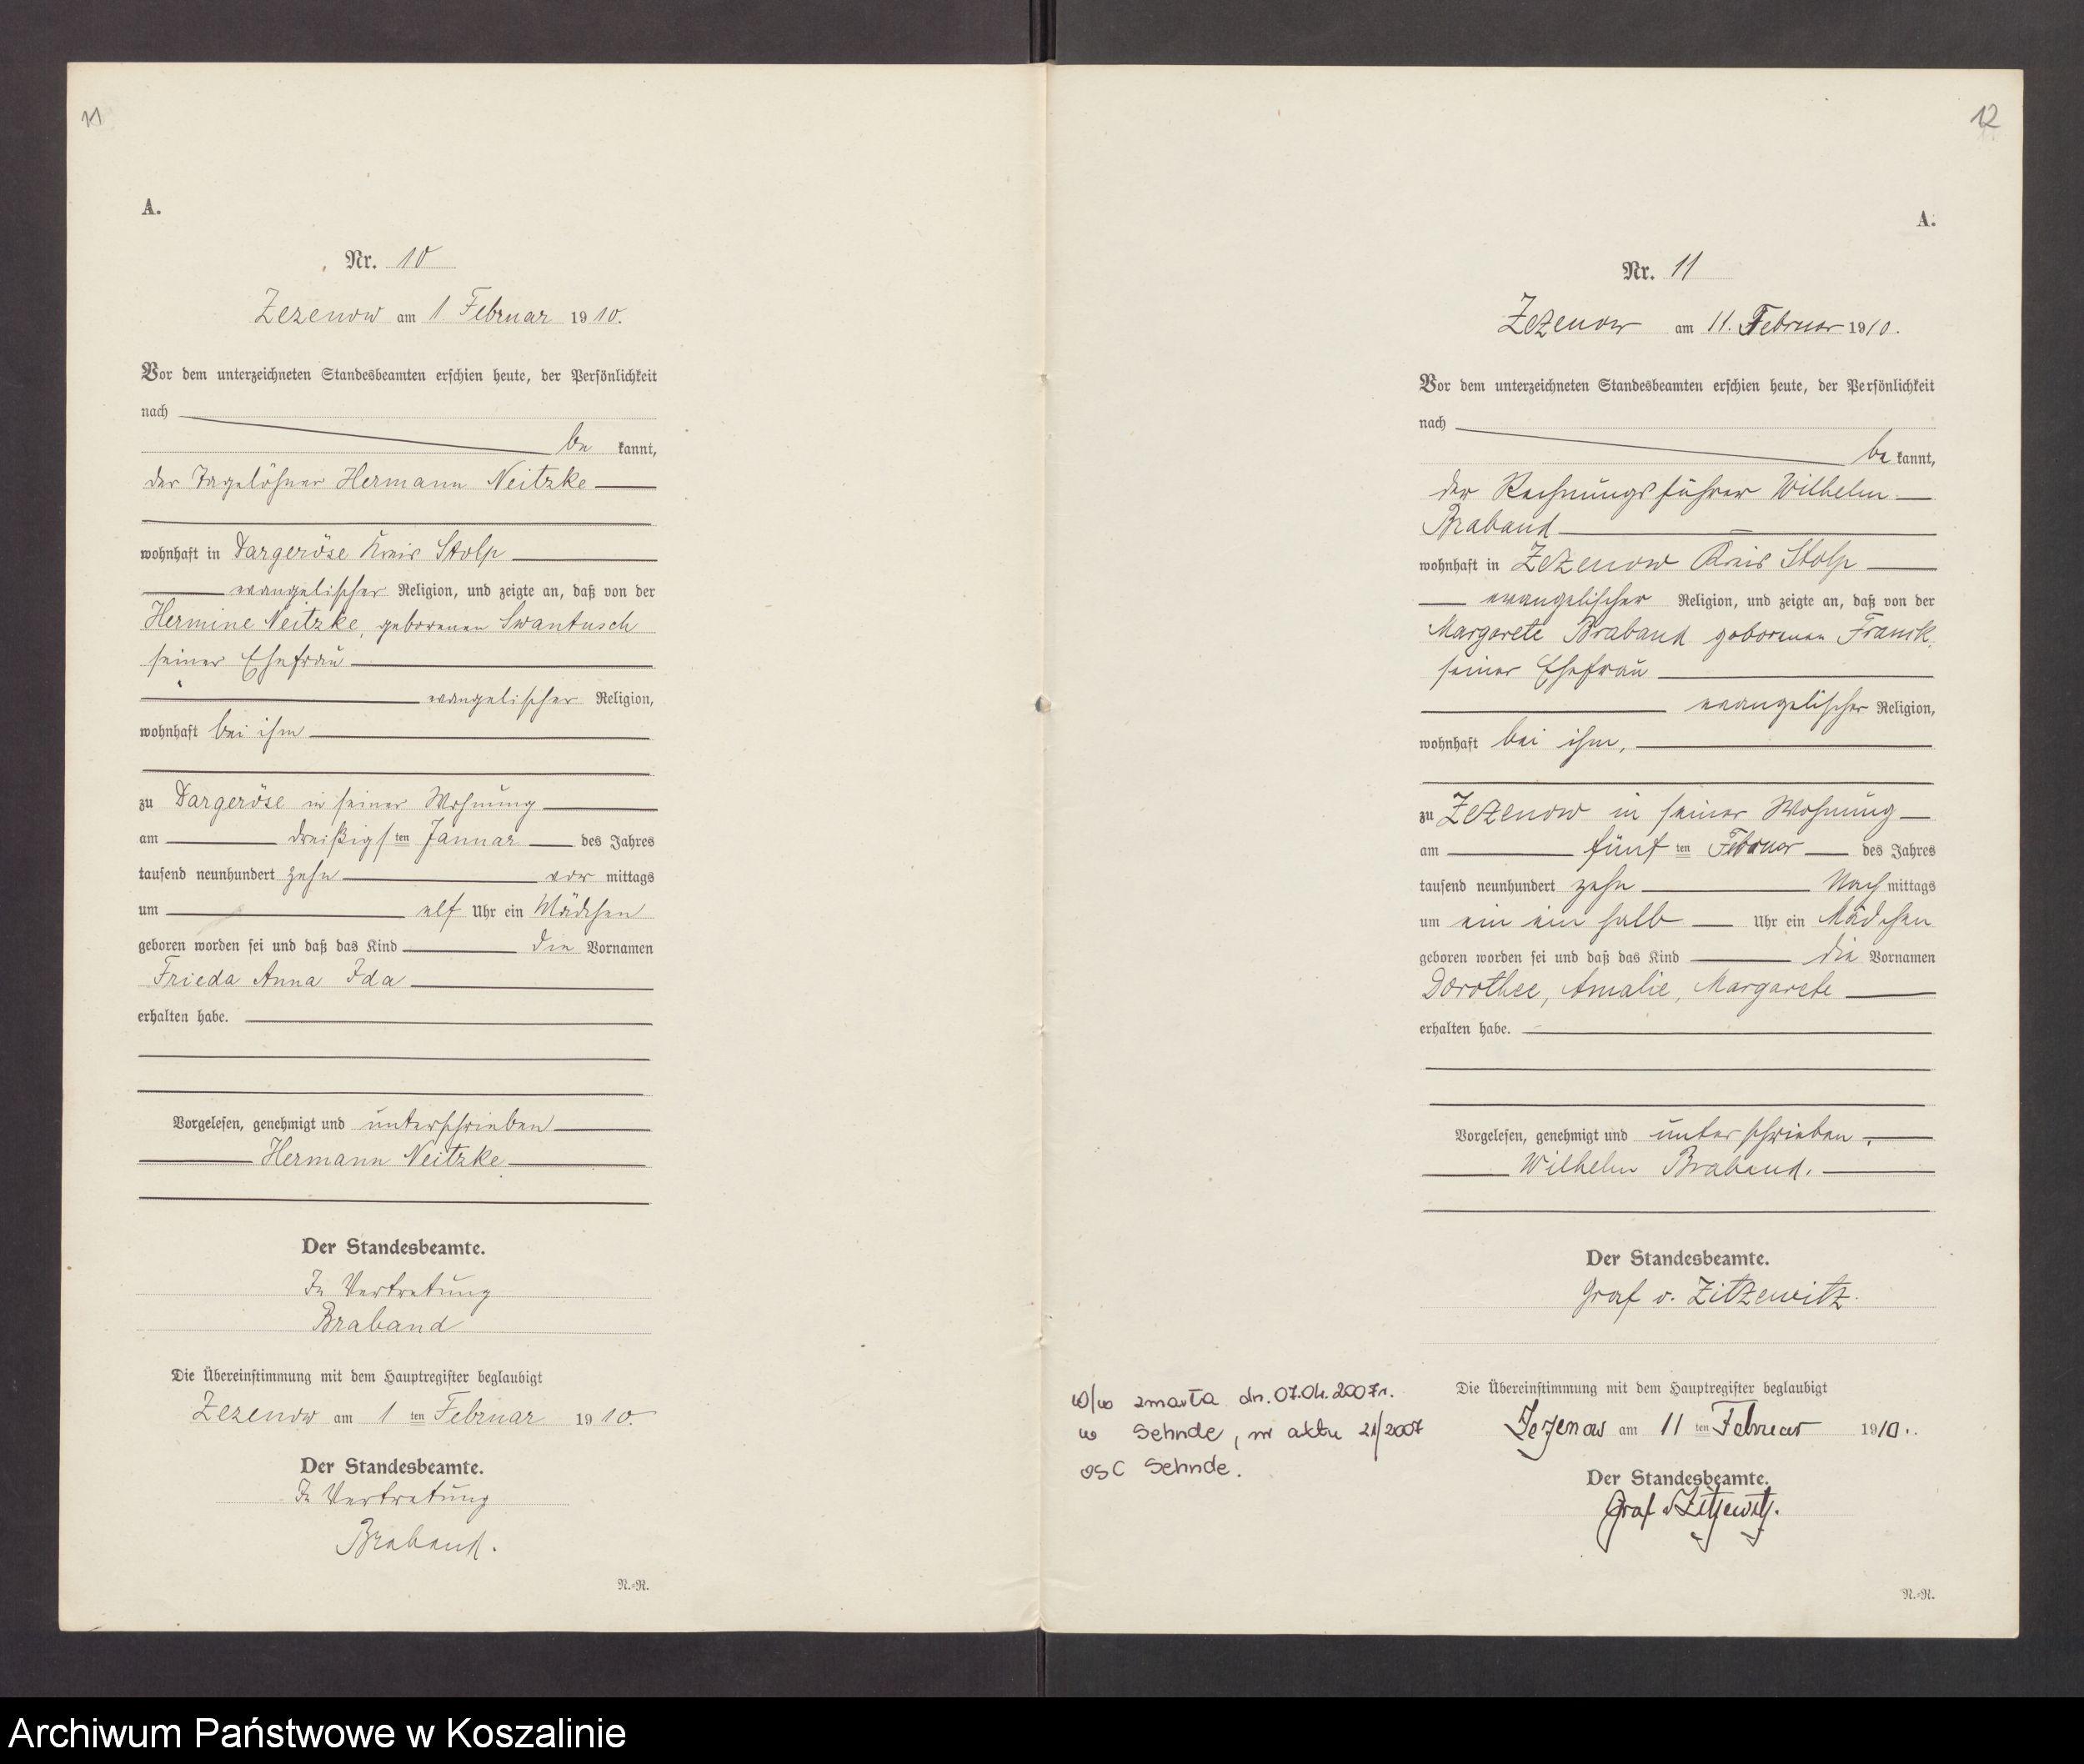 11
A.
Nr. 10
Zezenow am 1. Februar 1910.
Vor dem unterzeichneten Standesbeamten erschien heute, der Persönlichkeit
nach
be kannt,
der Tagelöhner Hermann Neitzke
wohnhaft in Dargeröse Kreis Stolp
evangelischer Religion, und zeigte an, daß von der
Hermine Neitzke, geborenen Swantusch
seiner Ehefrau
evangelischer Religion,
wohnhaft bei ihm
zu Dargeröse in seiner Wohnung
am dreißigsten Januar des Jahres
tausend neunhundert zehn vor mittags
um elf Uhr ein Mädchen
geboren worden sei und daß das Kind die Vornamen
Frieda Anna Ida
erhalten habe.
Vorgelesen, genehmigt und unterschrieben
Hermann Neitzke
Der Standesbeamte.
In Vertretung
Braband
Die Übereinstimmung mit dem Hauptregister beglaubigt
Zezenow am 1 ten Februar 1910.
Der Standesbeamte.
In Vertretung
Braband.
N.=R.
12
A.
Nr. 11
Zezenow am 11. Februar 1910.
Vor dem unterzeichneten Standesbeamten erschien heute, der Persönlichkeit
nach
be kannt,
der Rechnungsführer Wilhelm
Braband
wohnhaft in Zezenow Kreis Stolp
evangelischer Religion, und zeigte an, daß von der
Margarete Braband geborenen
seiner Ehefrau
evangelischer Religion,
wohnhaft bei ihm,
zu Zezenow in seiner Wohnung
am fünf ten Februar des Jahres
tausend neunhundert zehn Nach mittags
um ein ein halb Uhr ein Mädchen
geboren worden sei und daß das Kind die Vornamen
Dorothee, Amalie, Margarete
erhalten habe.
Vorgelesen, genehmigt und unterschrieben.
Wilhelm Braband.
Der Standesbeamte.
Graf v. Zitzewitz.
Die Übereinstimmung mit dem Hauptregister beglaubigt
Zezenow am 11 ten Februar 1910.
Der Standesbeamte.
Graf v Zitzewitz.
N.=R.
W/w zmarła dn. 07.04.2007r.
w Sehnde, nr aktu 21/2007
USC Sehnde.
Archiwum Państwowe w Koszalinie